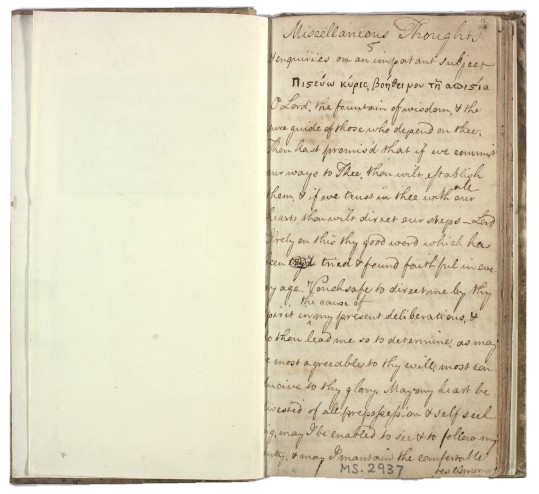 Miscellaneous Thoughts
& enquiries on an important subject
Πιςεύω κύριε, βοήθει μου τῆ ἀπιςία
O Lord, the fountain of wisdom, & the
sure guide of those who depend on thee;
Thou hast promisd that if we commit
our ways to Thee, thou wilt establish
them, & if we trust in thee with all our
hearts thou wilt direct our steps – Lord
I rely on this thy good word which has
been tried & found faithful in eve
ry age. Vouchsafe to direct me by thy
Spirit in the cause of my present deliberations, &
do thou lead me so to determine, as may
be most agreeable to thy will, most con
ducive to thy glory. May my heart be
divested of all prepossession & self seek
ing, may I be enabled to see & to follow my
duty, & may I maintain the comfortable
testimony
MS. 2937